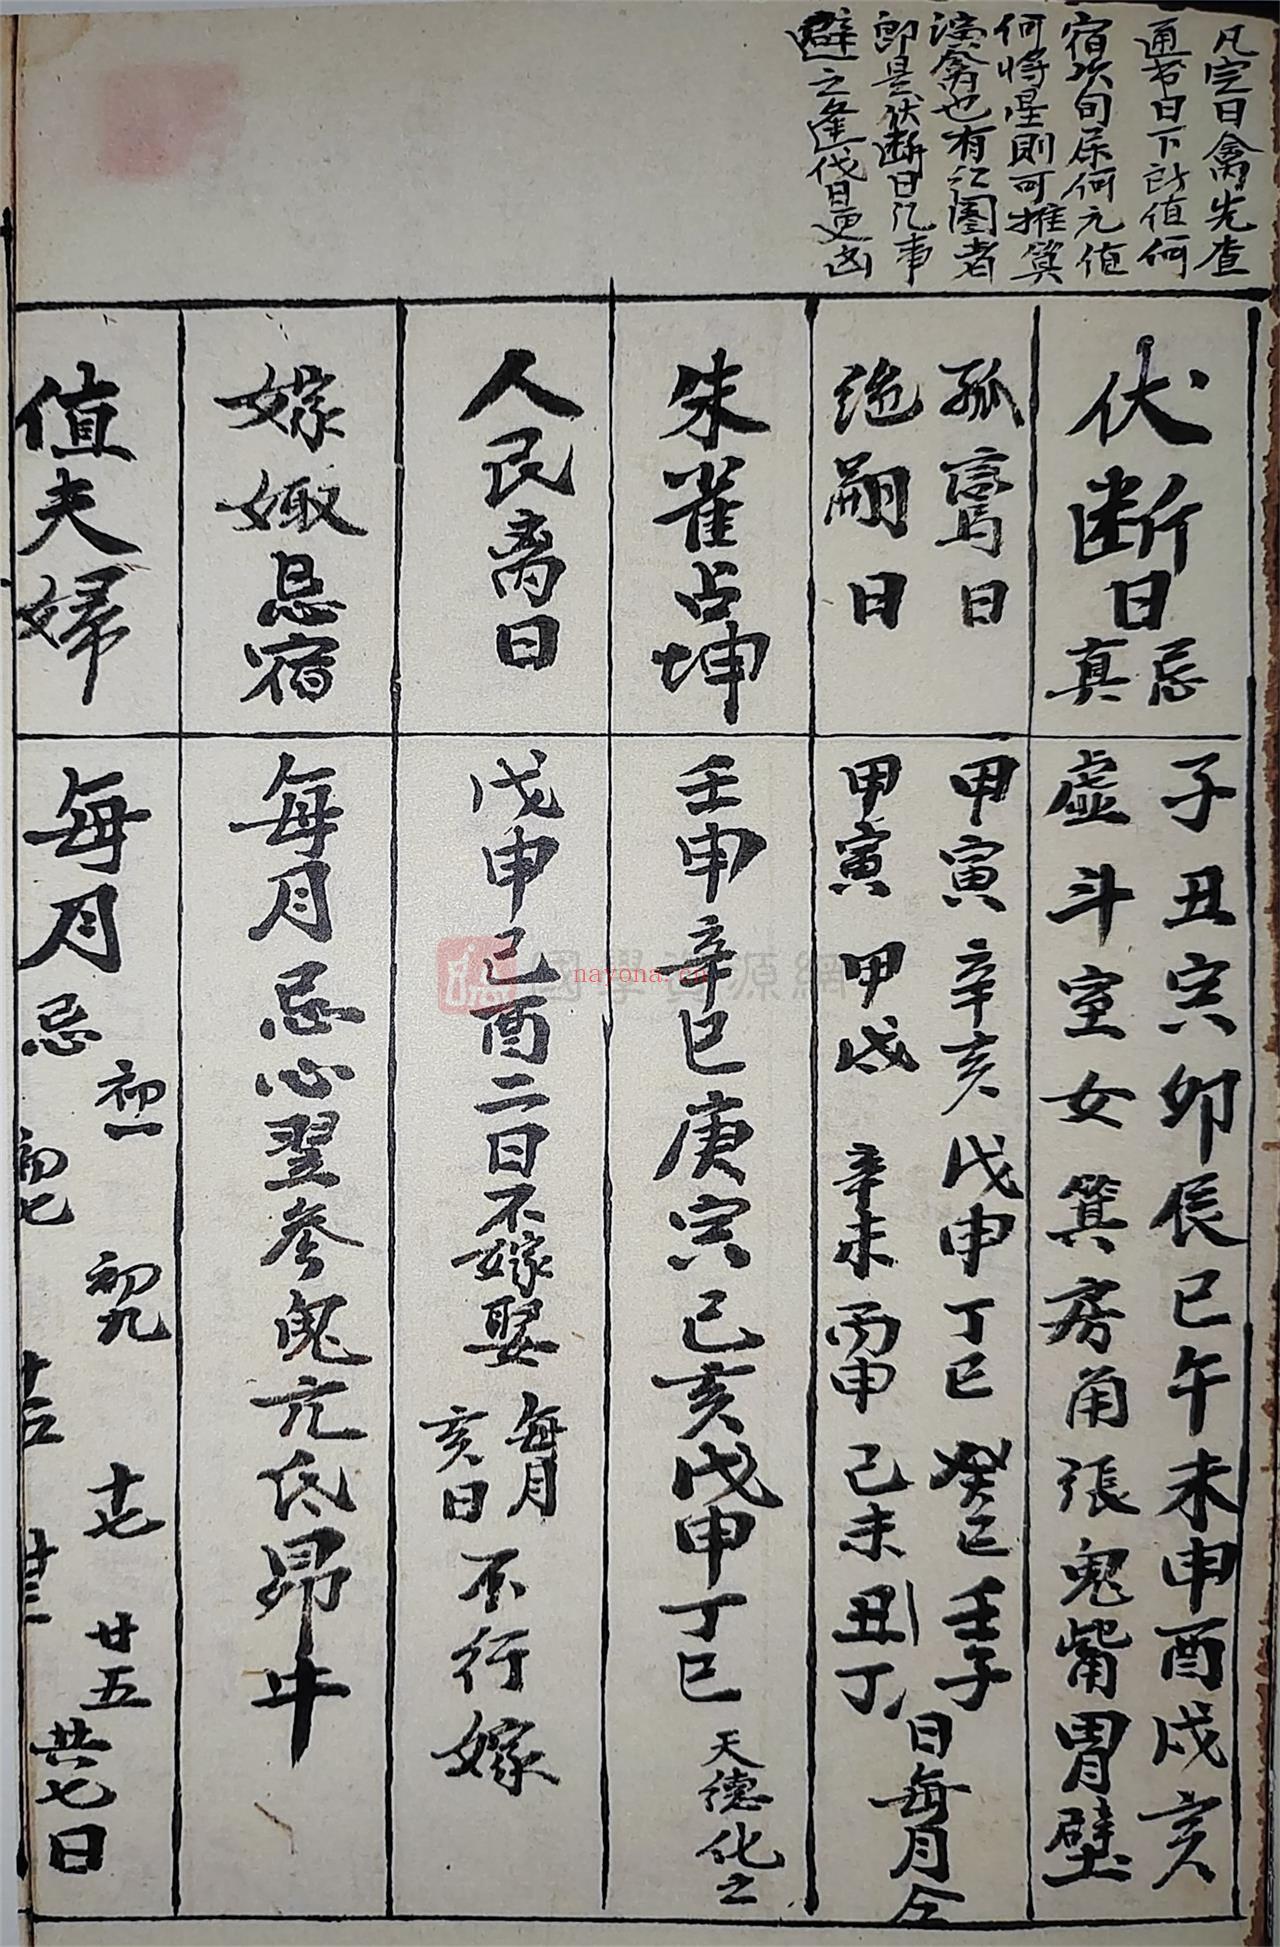 凡定日禽先查
通书日下所值何
宿次旬属何元值
何将星則可推算
演禽也有红圈者
即是伏断日凡事
避之逢伐日更凶
伏断日忌真
子丑寅卯辰巳午未申酉戌亥
虚斗室女箕房角張鬼觜胃壁
孤寡日
绝嗣日
甲寅 辛亥 戊申 丁巳 癸巳 壬子
甲寅 甲戌 辛未 丙申 己未 丑丁
日每月仝
朱雀占坤
壬申辛巳庚寅己亥戊申丁巳 天德化之
人民离日
戊申己酉二日不嫁娶 每月亥日 不行嫁
嫁娵忌宿
每月忌心翌参鬼亢氐昂牛
值夫婦
每月忌 初一 初七 初九 十五 十七 廿五 共七日
國學資源網
nayona.cn